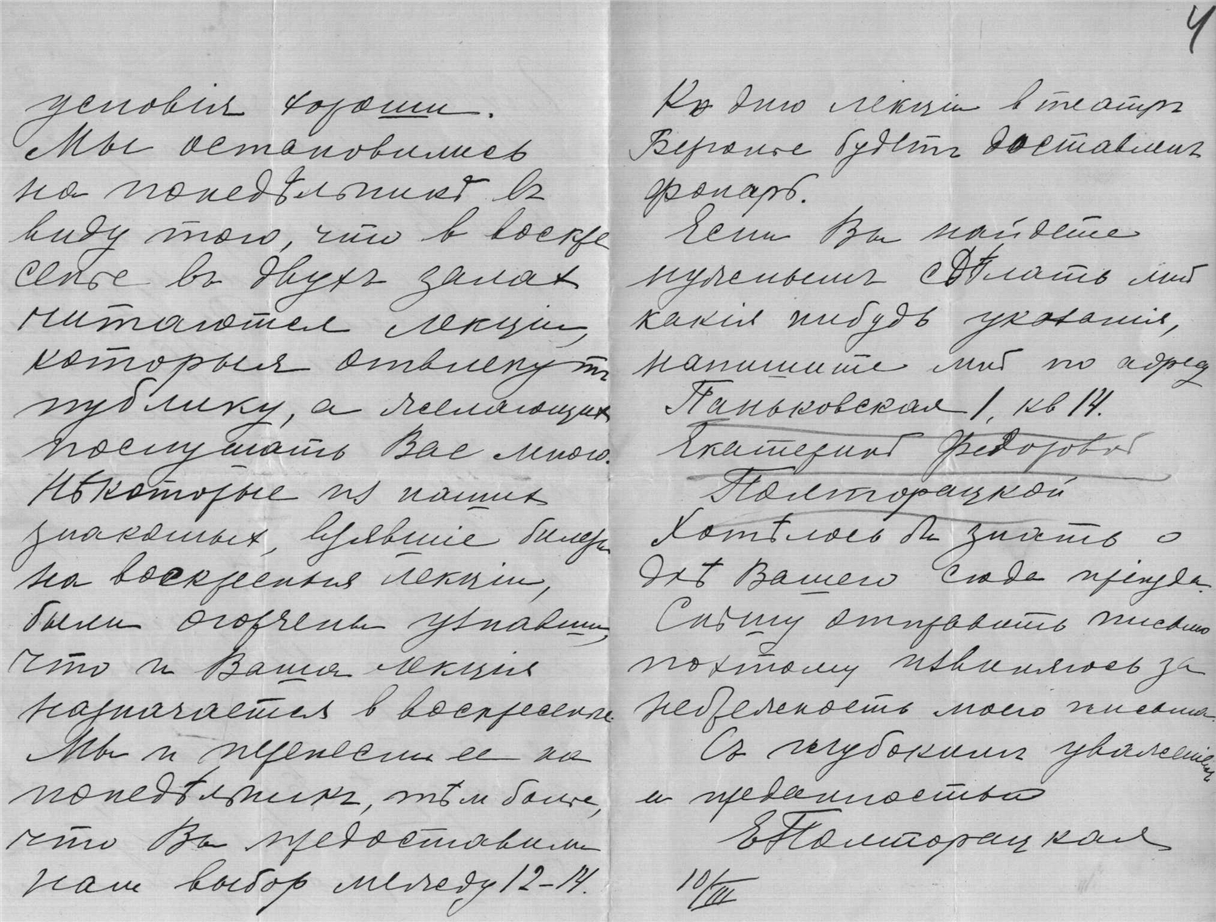 условія хороши.
Мы остановились
на понедѣльникѣ въ
виду того, что в воскре
сенье въ двухъ залах
читаются лекціи,
которыя отвлекутъ
публику, а желающих
послушать Вас много.
Нѣкоторые из наших
знакомых, взявшіе билеты
на воскресныя лекціи,
были огорчены узнавши,
что и Ваша лекція
назначается в воскресенье
Мы и перенесли ее на
понедѣльникъ, тѣм более,
что Вы предоставили
нам выбор между 12–14.
4
Ко дню лекціи в театръ
Бергонье будетъ доставленъ
фонарь.
Если Вы найдете
нужнымъ сдѣлать мнѣ
какія нибудь указанія,
напишите мнѣ по адресу
Паньковская 1, кв 14.
Екатеринѣ Федоровнѣ
Полторацкой
Хотѣлось бы знать о
днѣ Вашего сюда пріезда.
Спѣшу отправить письмо
поэтому извиняюсь за
небрежность моего письма.
Съ глубокимъ уваженіемъ
и преданностью
ЕПолторацкая
10/III